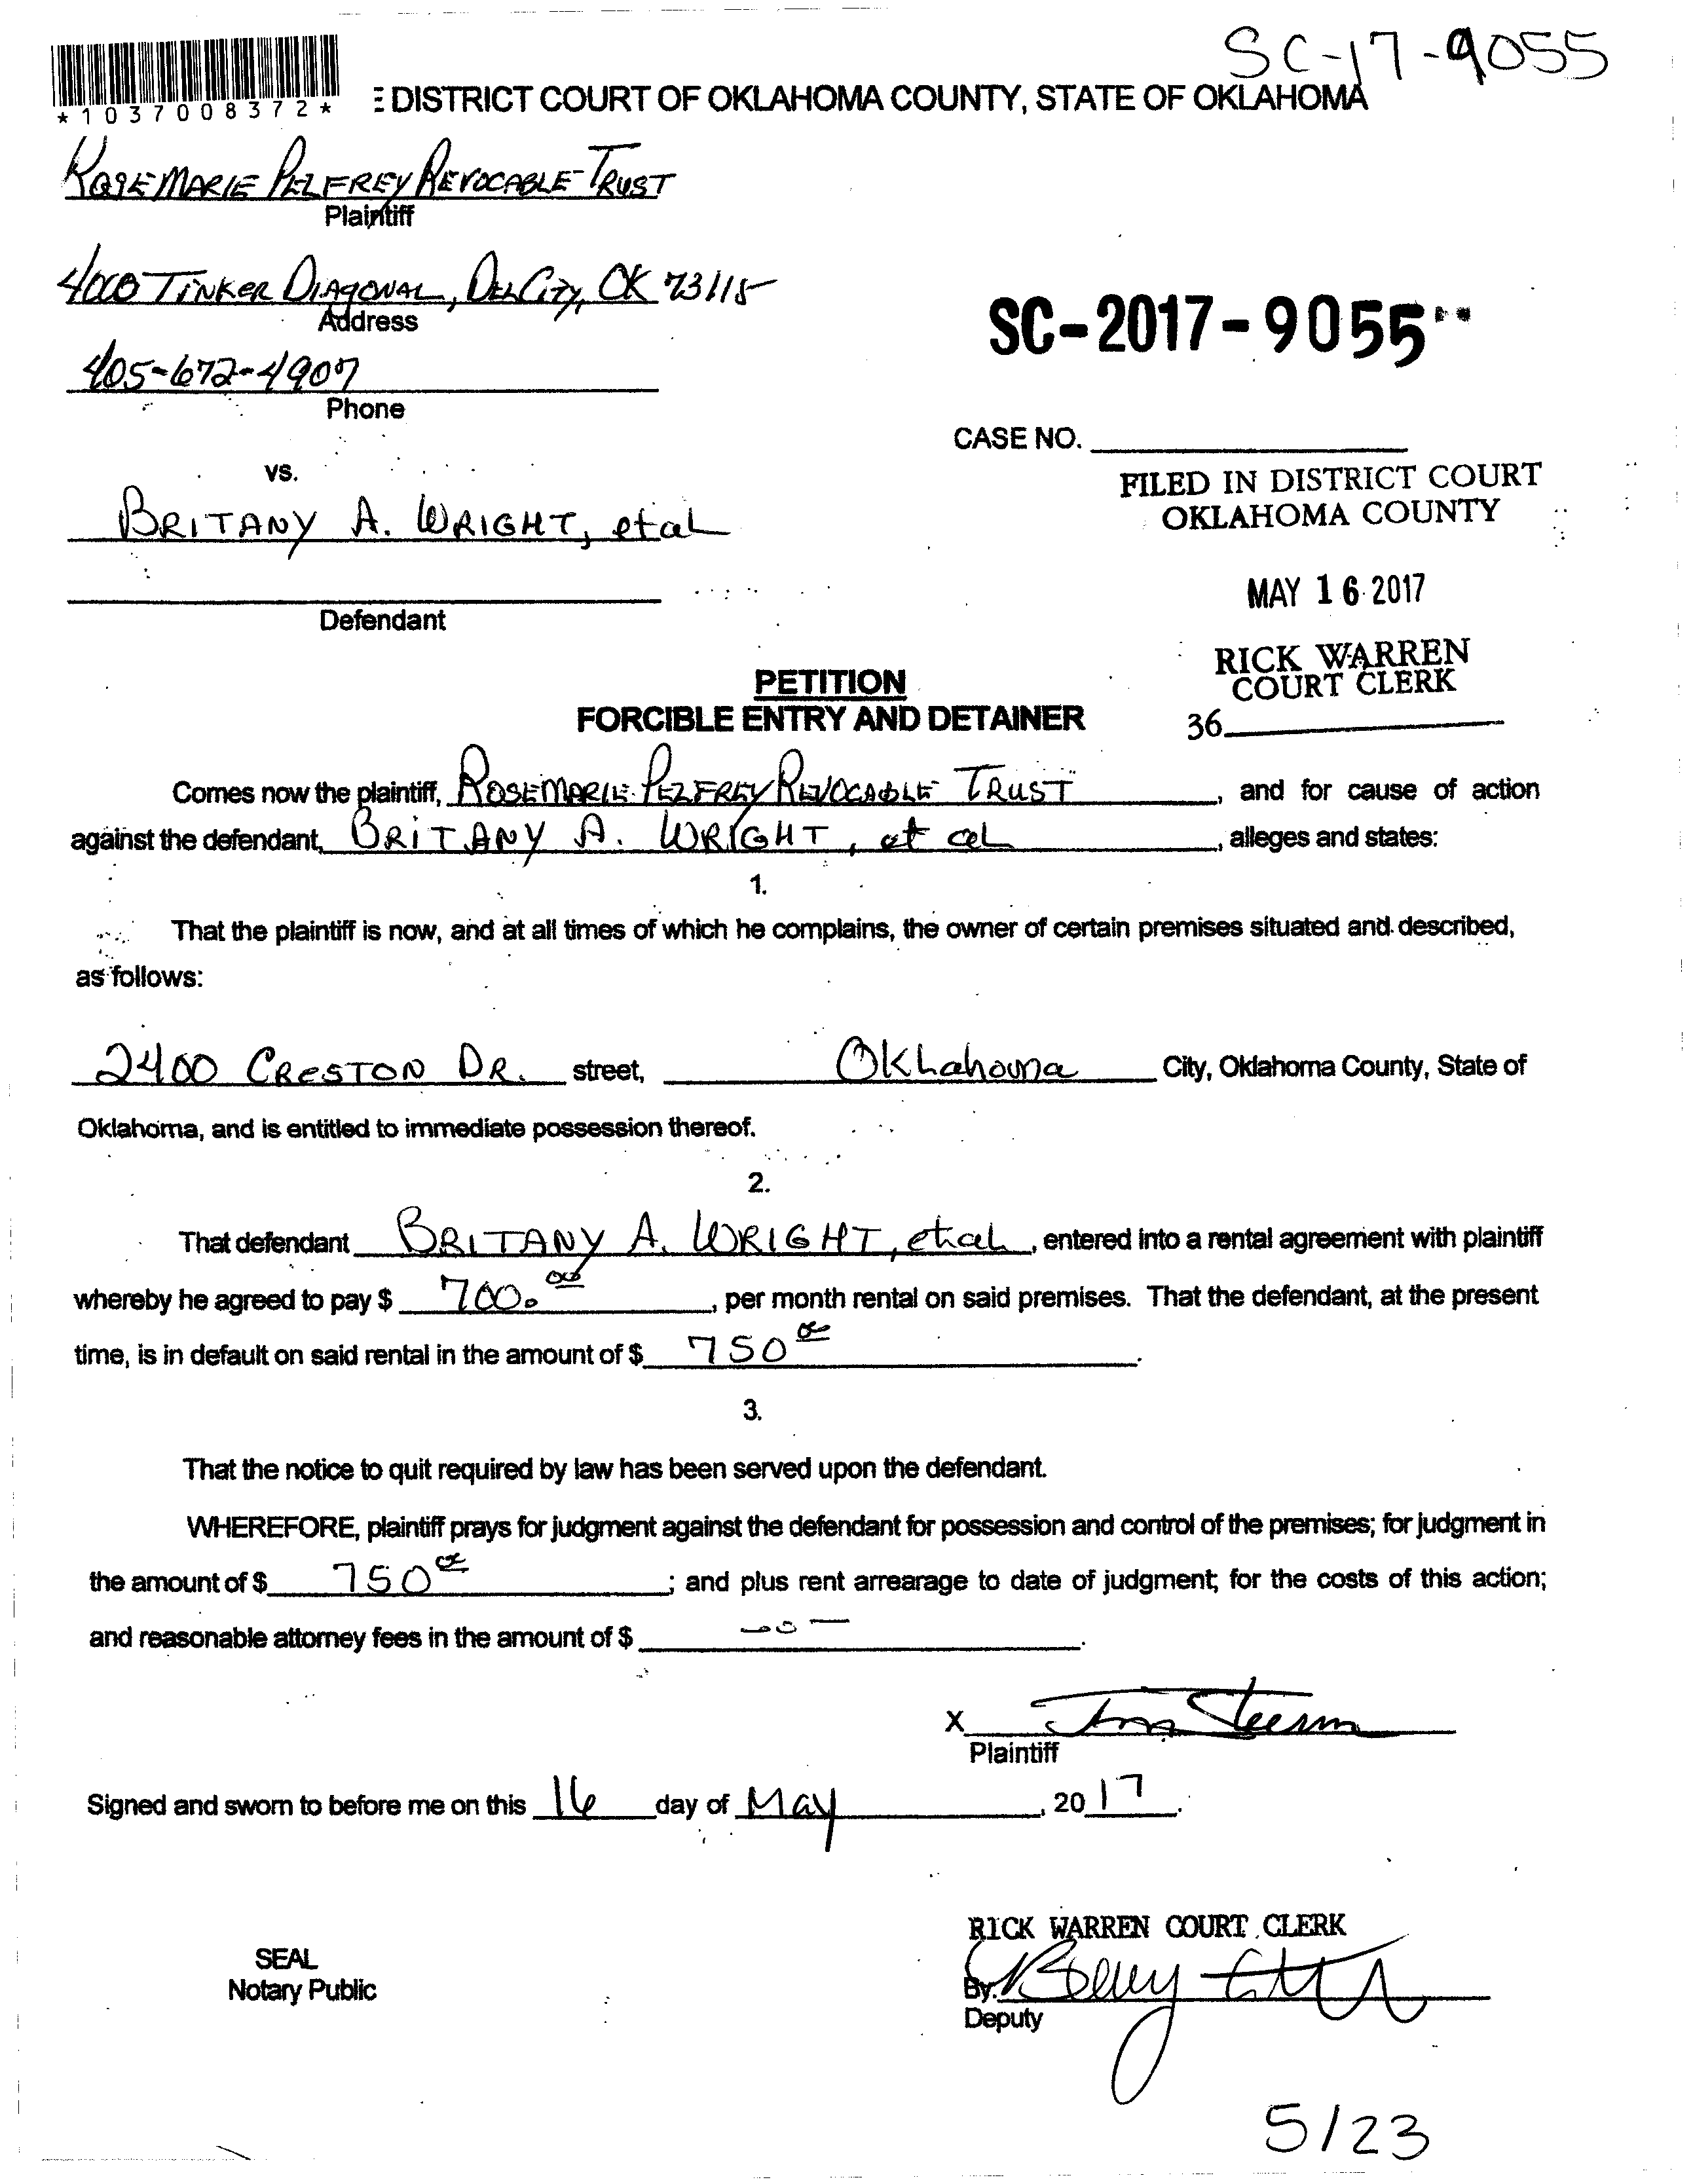 SC-17-9055
*1037008372*
E DISTRICT COURT OF OKLAHOMA COUNTY, STATE OF OKLAHOMA
ROSEMARIE PELFREY REVOCABLE TRUST
Plaintiff
4000 TINKER DIAGONAL, DEL CITY, OK 73115
Address
SC-2017-9055
405-672-4907
Phone
CASE NO.
vs.
FILED IN DISTRICT COURT
OKLAHOMA COUNTY
BRITANY A. WRIGHT, et al
MAY 16 2017
Defendant
RICK WARREN
COURT CLERK
36
PETITION
FORCIBLE ENTRY AND DETAINER
Comes now the plaintiff, ROSEMARIE PELFREY REVOCABLE TRUST, and for cause of action
against the defendant, BRITANY A. WRIGHT, et al, alleges and states:
1.
That the plaintiff is now, and at all times of which he complains, the owner of certain premises situated and described,
as follows:
2400 CRESTON DR. street, Oklahoma City, Oklahoma County, State of
Oklahoma, and is entitled to immediate possession thereof.
2.
That defendant BRITANY A. WRIGHT, et al, entered into a rental agreement with plaintiff
whereby he agreed to pay $ 700.00, per month rental on said premises. That the defendant, at the present
time, is in default on said rental in the amount of $ 750 00.
3.
That the notice to quit required by law has been served upon the defendant.
WHEREFORE, plaintiff prays for judgment against the defendant for possession and control of the premises; for judgment in
the amount of $ 750 00; and plus rent arrearage to date of judgment; for the costs of this action;
and reasonable attorney fees in the amount of $ -0-.
X
Plaintiff
Signed and sworn to before me on this 16 day of May, 2017.
RICK WARREN COURT CLERK
SEAL
Notary Public
By:
Deputy
5/23